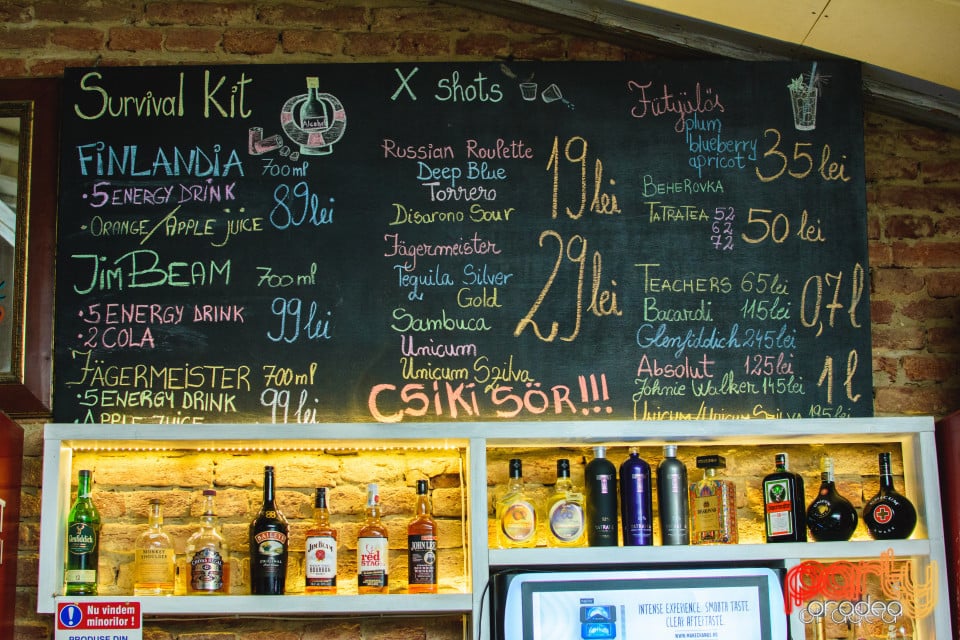 Survival Kit
Alcohol
FINLANDIA 700ml
·5 ENERGY DRINK
·ORANGE/APPLE JUICE
89lei
JIM BEAM 700 ml
·5 ENERGY DRINK
·2 COLA
99lei
JÄGERMEISTER 700ml
·5 ENERGY DRINK
APPLE JUICE
99lei
X shots
Russian Roulette
Deep Blue
Torrero
Disarono Sour
19lei
Jägermeister
Tequila Silver
Gold
Sambuca
Unicum
Unicum Szilva
29lei
CSÍKI SÖR!!!
Fütyülős
plum
blueberry
apricot
35lei
BEHEROVKA
TATRATEA 52
62
72
50 lei
TEACHERS 65lei
Bacardi 115lei
Glenfiddich 245lei
0,7l
Absolut 125lei
Johnie Walker 145lei
Unicum/Unicum SZILVA 195lei
1l
MONKEY
SHOULDER
BAILEYS
JIM BEAM
RED STAG
JOHN LEE
TATRATEA
Nu vindem
minorilor!
PRODUSE DIN
INTENSE EXPERIENCE. SMOOTH TASTE
CLEAR AFTERTASTE
party
oradea